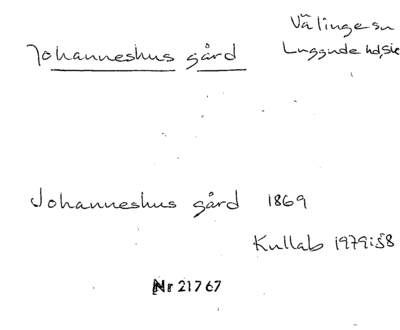 Johanneshus gård
Välinge sn
Luggude hd, Sk
Johanneshus gård 1869
Kullab 1979:58
Nr 21767